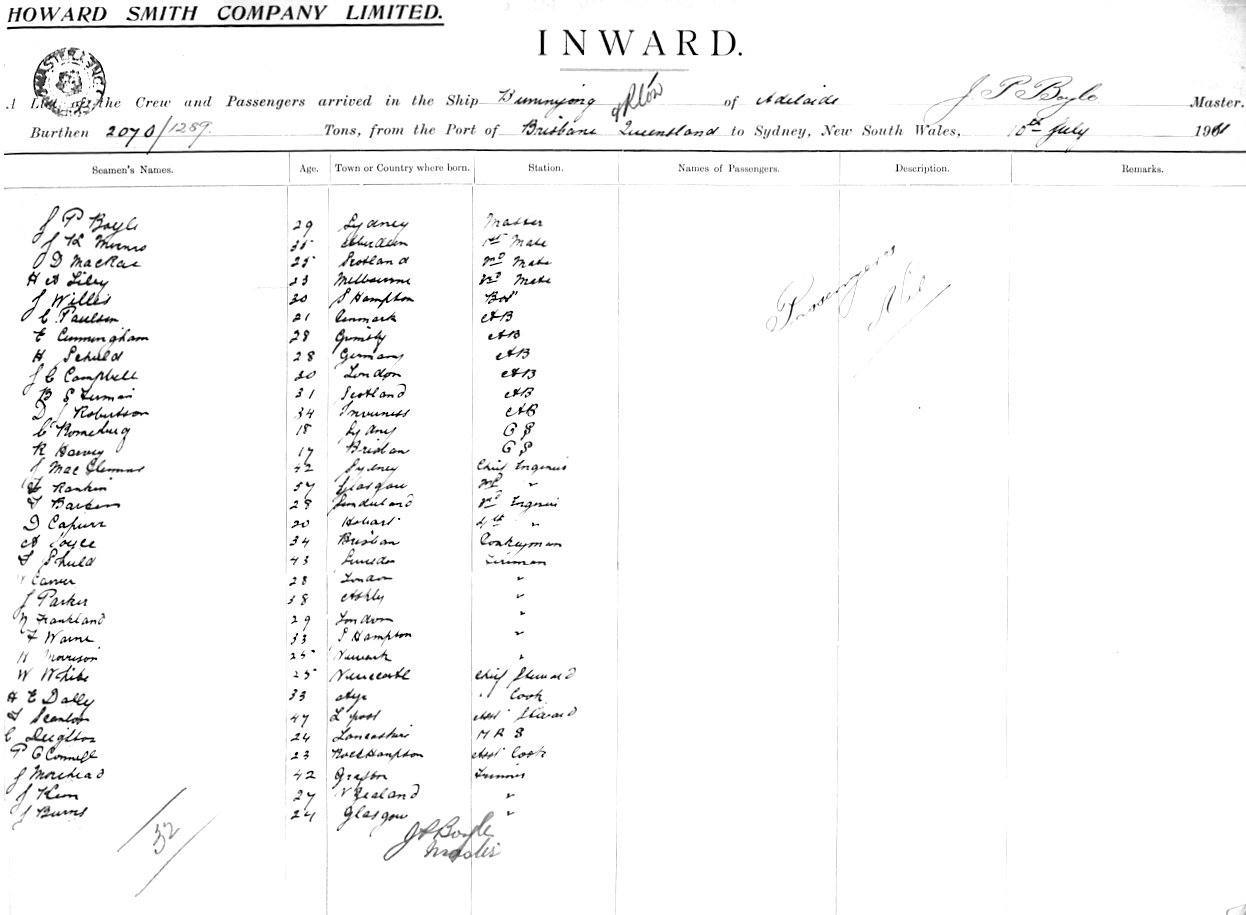 HOWARD SMITH COMPANY LIMITED.
INWARD.
A List of the Crew and Passengers arrived in the Ship Buninyong of Adelaide J P Boyle Master.
Burthen 2070/1289. Tons, from the Port of Brisbane Queensland to Sydney, New South Wales, 10th July 1901
Seamen's Names. Age. Town or Country where born. Station. Names of Passengers. Description. Remarks.
J P Boyle 29 Sydney Master
J K Munro 35 Aberdeen 1st Mate
D MacRae 25 Scotland 2nd Mate
H A Liley 23 Melbourne 3rd Mate
J Willis 20 S Hampton Bos
C Paulsen 21 Denmark AB
E Cunningham 28 Grimsby AB
H Schuld 28 Germany AB
J C Campbell 20 London AB
B S 31 Scotland AB
D J Robertson 34 Inverness AB
C Romeburg 18 Sydny O S
R Harvey 17 Brisban O S
J Mac 42 Sydney Chief Engineer
Rankin 57 Glasgow 2nd "
28 Sunderland 3rd Engineer
D Capurr 20 Hobart 4th "
A Joyce 34 Brisban Donkeyman
Shuld 43 Sweden Fireman
W Carver 28 London "
J Parker 38 Ashby "
N Frankland 29 London "
F Warne 33 S Hampton "
H Morrison 25 Newark "
W White 25 Newcastle Chief Steward
H E Dally 33 Ayr " Cook
Scanlon 47 L'pool Asst Steward
C Deighton 24 Lancashire M R S
P O Connell 23 Rockhampton Asst Cook
J Morehead 42 Grafton Trimmer
J 27 N Zealand "
J Burns 24 Glasgow "
Passengers
Nil
32
J P Boyle
Master